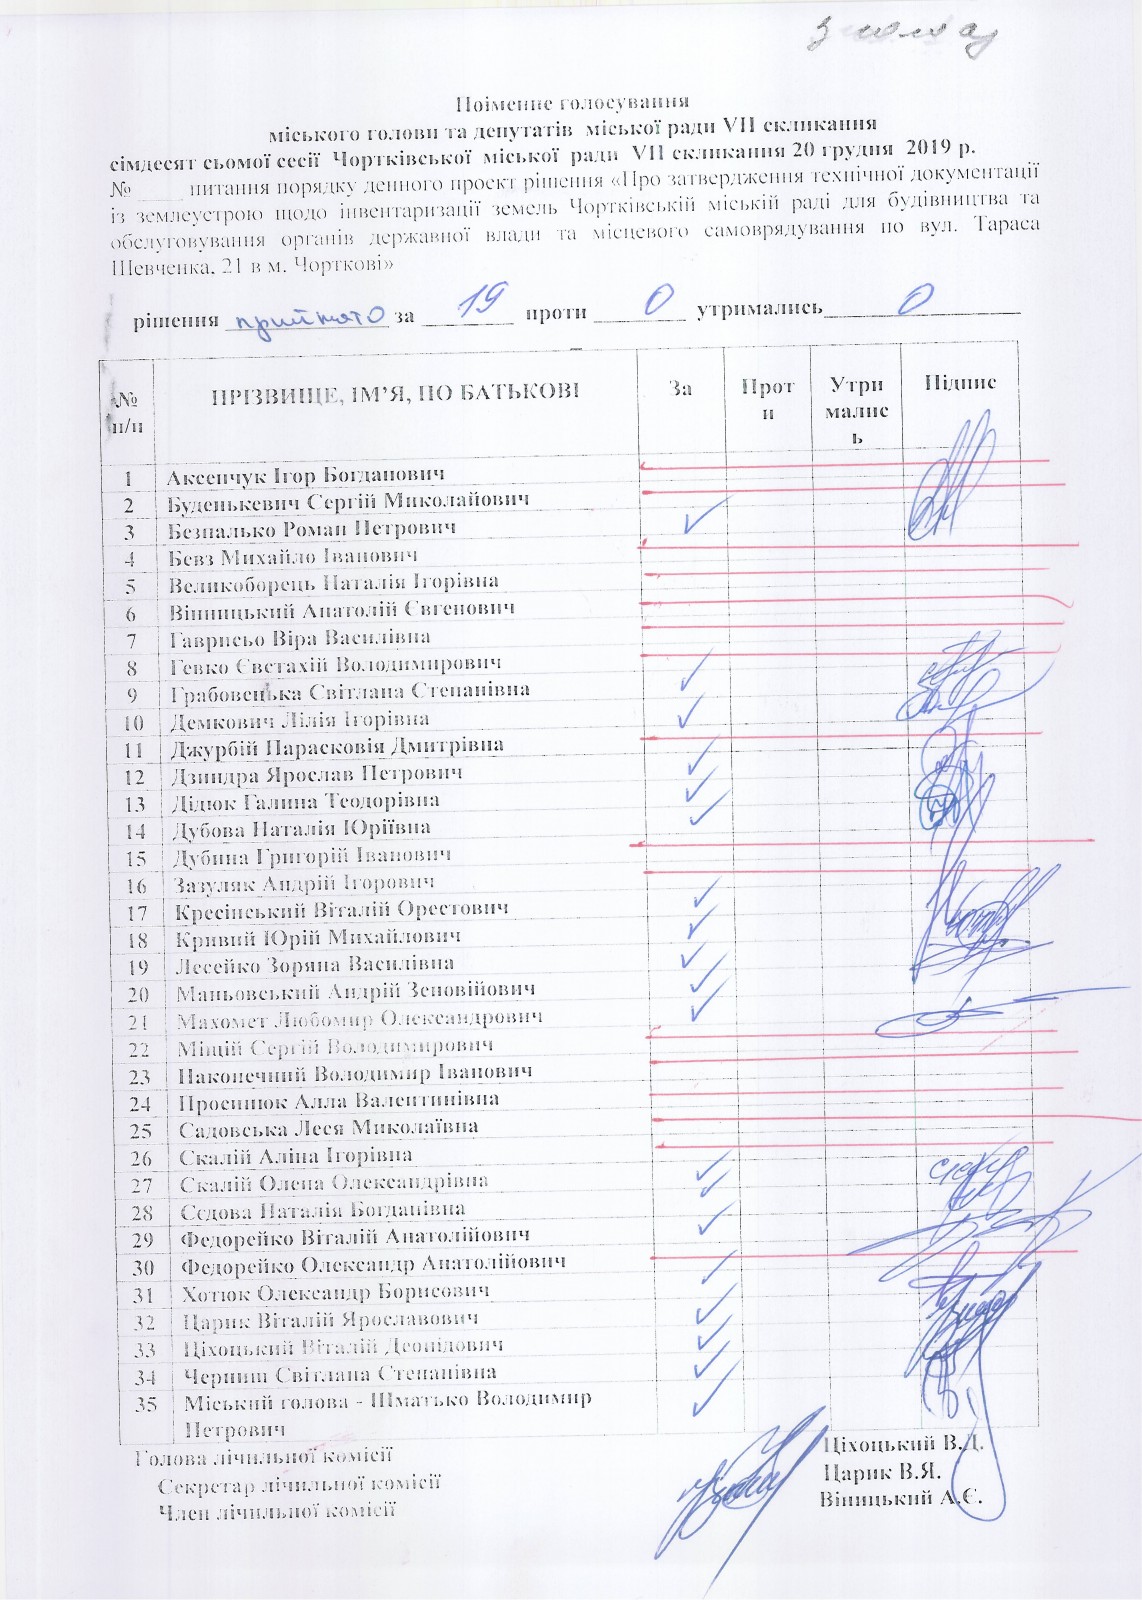 з голосу
Поіменне голосування
міського голови та депутатів міської ради VII скликання
сімдесят сьомої сесії Чортківської міської ради VII скликання 20 грудня 2019 р.
№ ____ питання порядку денного проект рішення «Про затвердження технічної документації
із землеустрою щодо інвентаризації земель Чортківській міській раді для будівництва та
обслуговування органів державної влади та місцевого самоврядування по вул. Тараса
Шевченка, 21 в м. Чорткові»
рішення прийнято за 19 проти 0 утримались 0
№ п/п ПРІЗВИЩЕ, ІМ’Я, ПО БАТЬКОВІ За Проти Утримались Підпис
1 Аксенчук Ігор Богданович
2 Буденькевич Сергій Миколайович
3 Безпалько Роман Петрович ✓
4 Бевз Михайло Іванович
5 Великоборець Наталія Ігорівна
6 Вінницький Анатолій Євгенович
7 Гаврисьо Віра Василівна
8 Гевко Євстахій Володимирович ✓
9 Грабовенька Світлана Степанівна
10 Демкович Лілія Ігорівна ✓
11 Джурбій Парасковія Дмитрівна
12 Дзиндра Ярослав Петрович ✓
13 Дідюк Галина Теодорівна ✓
14 Дубова Наталія Юріївна ✓
15 Дубина Григорій Іванович
16 Зазуляк Андрій Ігорович
17 Кресінський Віталій Орестович ✓
18 Кривий Юрій Михайлович ✓
19 Лесейко Зоряна Василівна ✓
20 Маньовський Андрій Зеновійович ✓
21 Махомет Любомир Олександрович ✓
22 Міщій Сергій Володимирович
23 Наконечний Володимир Іванович
24 Просинюк Алла Валентинівна
25 Садовська Леся Миколаївна
26 Скалій Аліна Ігорівна
27 Скалій Олена Олександрівна ✓
28 Сєдова Наталія Богданівна ✓
29 Федорейко Віталій Анатолійович ✓
30 Федорейко Олександр Анатолійович
31 Хотюк Олександр Борисович ✓
32 Царик Віталій Ярославович ✓
33 Ціхоцький Віталій Деонідович ✓
34 Черниш Світлана Степанівна ✓
35 Міський голова - Шматько Володимир ✓
Петрович
Голова лічильної комісії Ціхоцький В.Д.
Секретар лічильної комісії Царик В.Я.
Член лічильної комісії Вінницький А.Є.